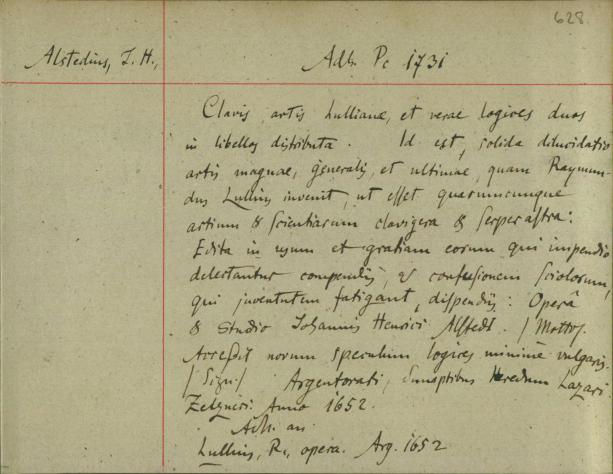 628.
Alstedius, J. H., Adl. Pc 1731
Clavis artis Lullianæ, et verae logices duos
in libellos distributa. Id est, solida dilucidatio
artis magnae, generalis, et ultimae, quam Raymun-
dus Lullius invenit, ut esset quarumcunque
artium & scientiarum clavigera &
Edita in usum et gratiam eorum qui impendio
delectantur compendiis, & confusionem sciolorum,
qui juventutem fatigant, dispendiis: Operâ
& studio Johannis Henrici Alstedi. /Motto/.
Accessit novum speculum logices minimè vulgaris.
/Sign/ Argentorati, Sumptibus Heredum Lazari
Zetzneri. Anno 1652.
Adl. an
Lullius, R., opera. Arg. 1652